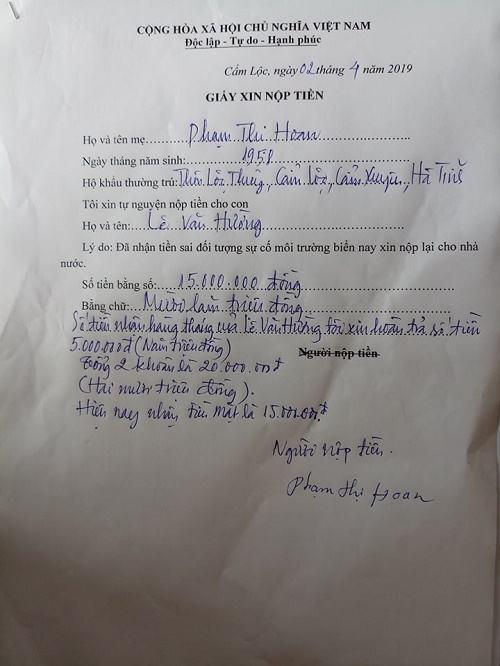 CỘNG HÒA XÃ HỘI CHỦ NGHĨA VIỆT NAM
Độc lập - Tự do - Hạnh phúc
Cẩm Lộc, ngày 02 tháng 4 năm 2019
GIẤY XIN NỘP TIỀN
Họ và tên mẹ: Phạm Thị Hoan
Ngày tháng năm sinh: 1958
Hộ khẩu thường trú: Thôn Lộc Thủy, Cẩm Lộc, Cẩm Xuyên, Hà Tĩnh
Tôi xin tự nguyện nộp tiền cho con
Họ và tên: Lê Văn Hường
Lý do: Đã nhận tiền sai đối tượng sự cố môi trường biển nay xin nộp lại cho nhà
nước.
Số tiền bằng số: 15.000.000 đồng
Bằng chữ: Mười lăm triệu đồng
Số tiền nhận hàng tháng của Lê Văn Hường tôi xin hoàn trả số tiền
5.000.000đ (Năm triệu đồng)
Người nộp tiền
Tổng 2 khoản là 20.000.000đ
(Hai mươi triệu đồng).
Hiện nay nhận tiền mặt là 15.000.000đ
Người nộp tiền.
Phạm thị Hoan